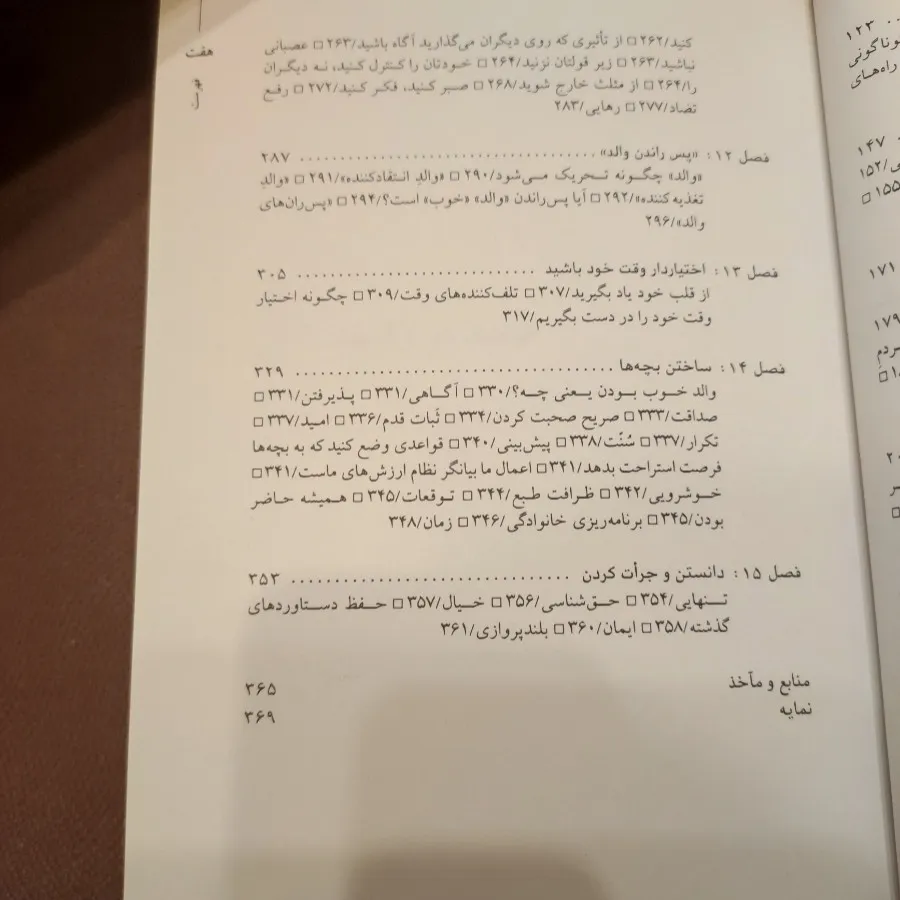 هفت
فهرست
کنید/۲۶۲ □ از تأثیری که روی دیگران می‌گذارید آگاه باشید/۲۶۳ □ عصبانی
نباشید/۲۶۳ □ زیر قولتان نزنید/۲۶۴ □ خودتان را کنترل کنید، نه دیگران
را/۲۶۴ □ از مثلث خارج شوید/۲۶۸ □ صبر کنید، فکر کنید/۲۷۲ □ رفع
تضاد/۲۷۷ □ رهایی/۲۸۳
فصل ۱۲: «پس راندن والد» .................................... ۲۸۷
«والد» چگونه تحریک می‌شود/۲۹۰ □ «والدِ انتقادکننده»/۲۹۱ □ «والدِ
تغذیه‌کننده»/۲۹۲ □ آیا پس‌راندن «والد» «خوب» است؟/۲۹۴ □ «پس‌ران‌های
والد»/۲۹۶
فصل ۱۳: اختیاردار وقت خود باشید ............................. ۳۰۵
از قلب خود یاد بگیرید/۳۰۷ □ تلف‌کننده‌های وقت/۳۰۹ □ چگونه اختیار
وقت خود را در دست بگیریم/۳۱۷
فصل ۱۴: ساختن بچه‌ها ...................................... ۳۲۹
والد خوب بودن یعنی چه؟/۳۳۰ □ آگاهی/۳۳۱ □ پذیرفتن/۳۳۱ □
صداقت/۳۳۳ □ صریح صحبت کردن/۳۳۴ □ ثَبات قدم/۳۳۶ □ امید/۳۳۷ □
تکرار/۳۳۷ □ سُنّت/۳۳۸ □ پیش‌بینی/۳۴۰ □ قواعدی وضع کنید که به بچه‌ها
فرصت استراحت بدهد/۳۴۱ □ اعمال ما بیانگر نظام ارزش‌های ماست/۳۴۱ □
خوشرویی/۳۴۲ □ ظرافت طبع/۳۴۴ □ توقعات/۳۴۵ □ همیشه حاضر
بودن/۳۴۵ □ برنامه‌ریزی خانوادگی/۳۴۶ □ زمان/۳۴۸
فصل ۱۵: دانستن و جرأت کردن ................................ ۳۵۳
تنهایی/۳۵۴ □ حق‌شناسی/۳۵۶ □ خیال/۳۵۷ □ حفظ دستاوردهای
گذشته/۳۵۸ □ ایمان/۳۶۰ □ بلندپروازی/۳۶۱
منابع و مآخذ ۳۶۵
نمایه ۳۶۹
۱۲۳
گوناگونی
راه‌های
۱۴۷
۱۵۲/
۱۵۵ □
۱۷۱
۱۷۹